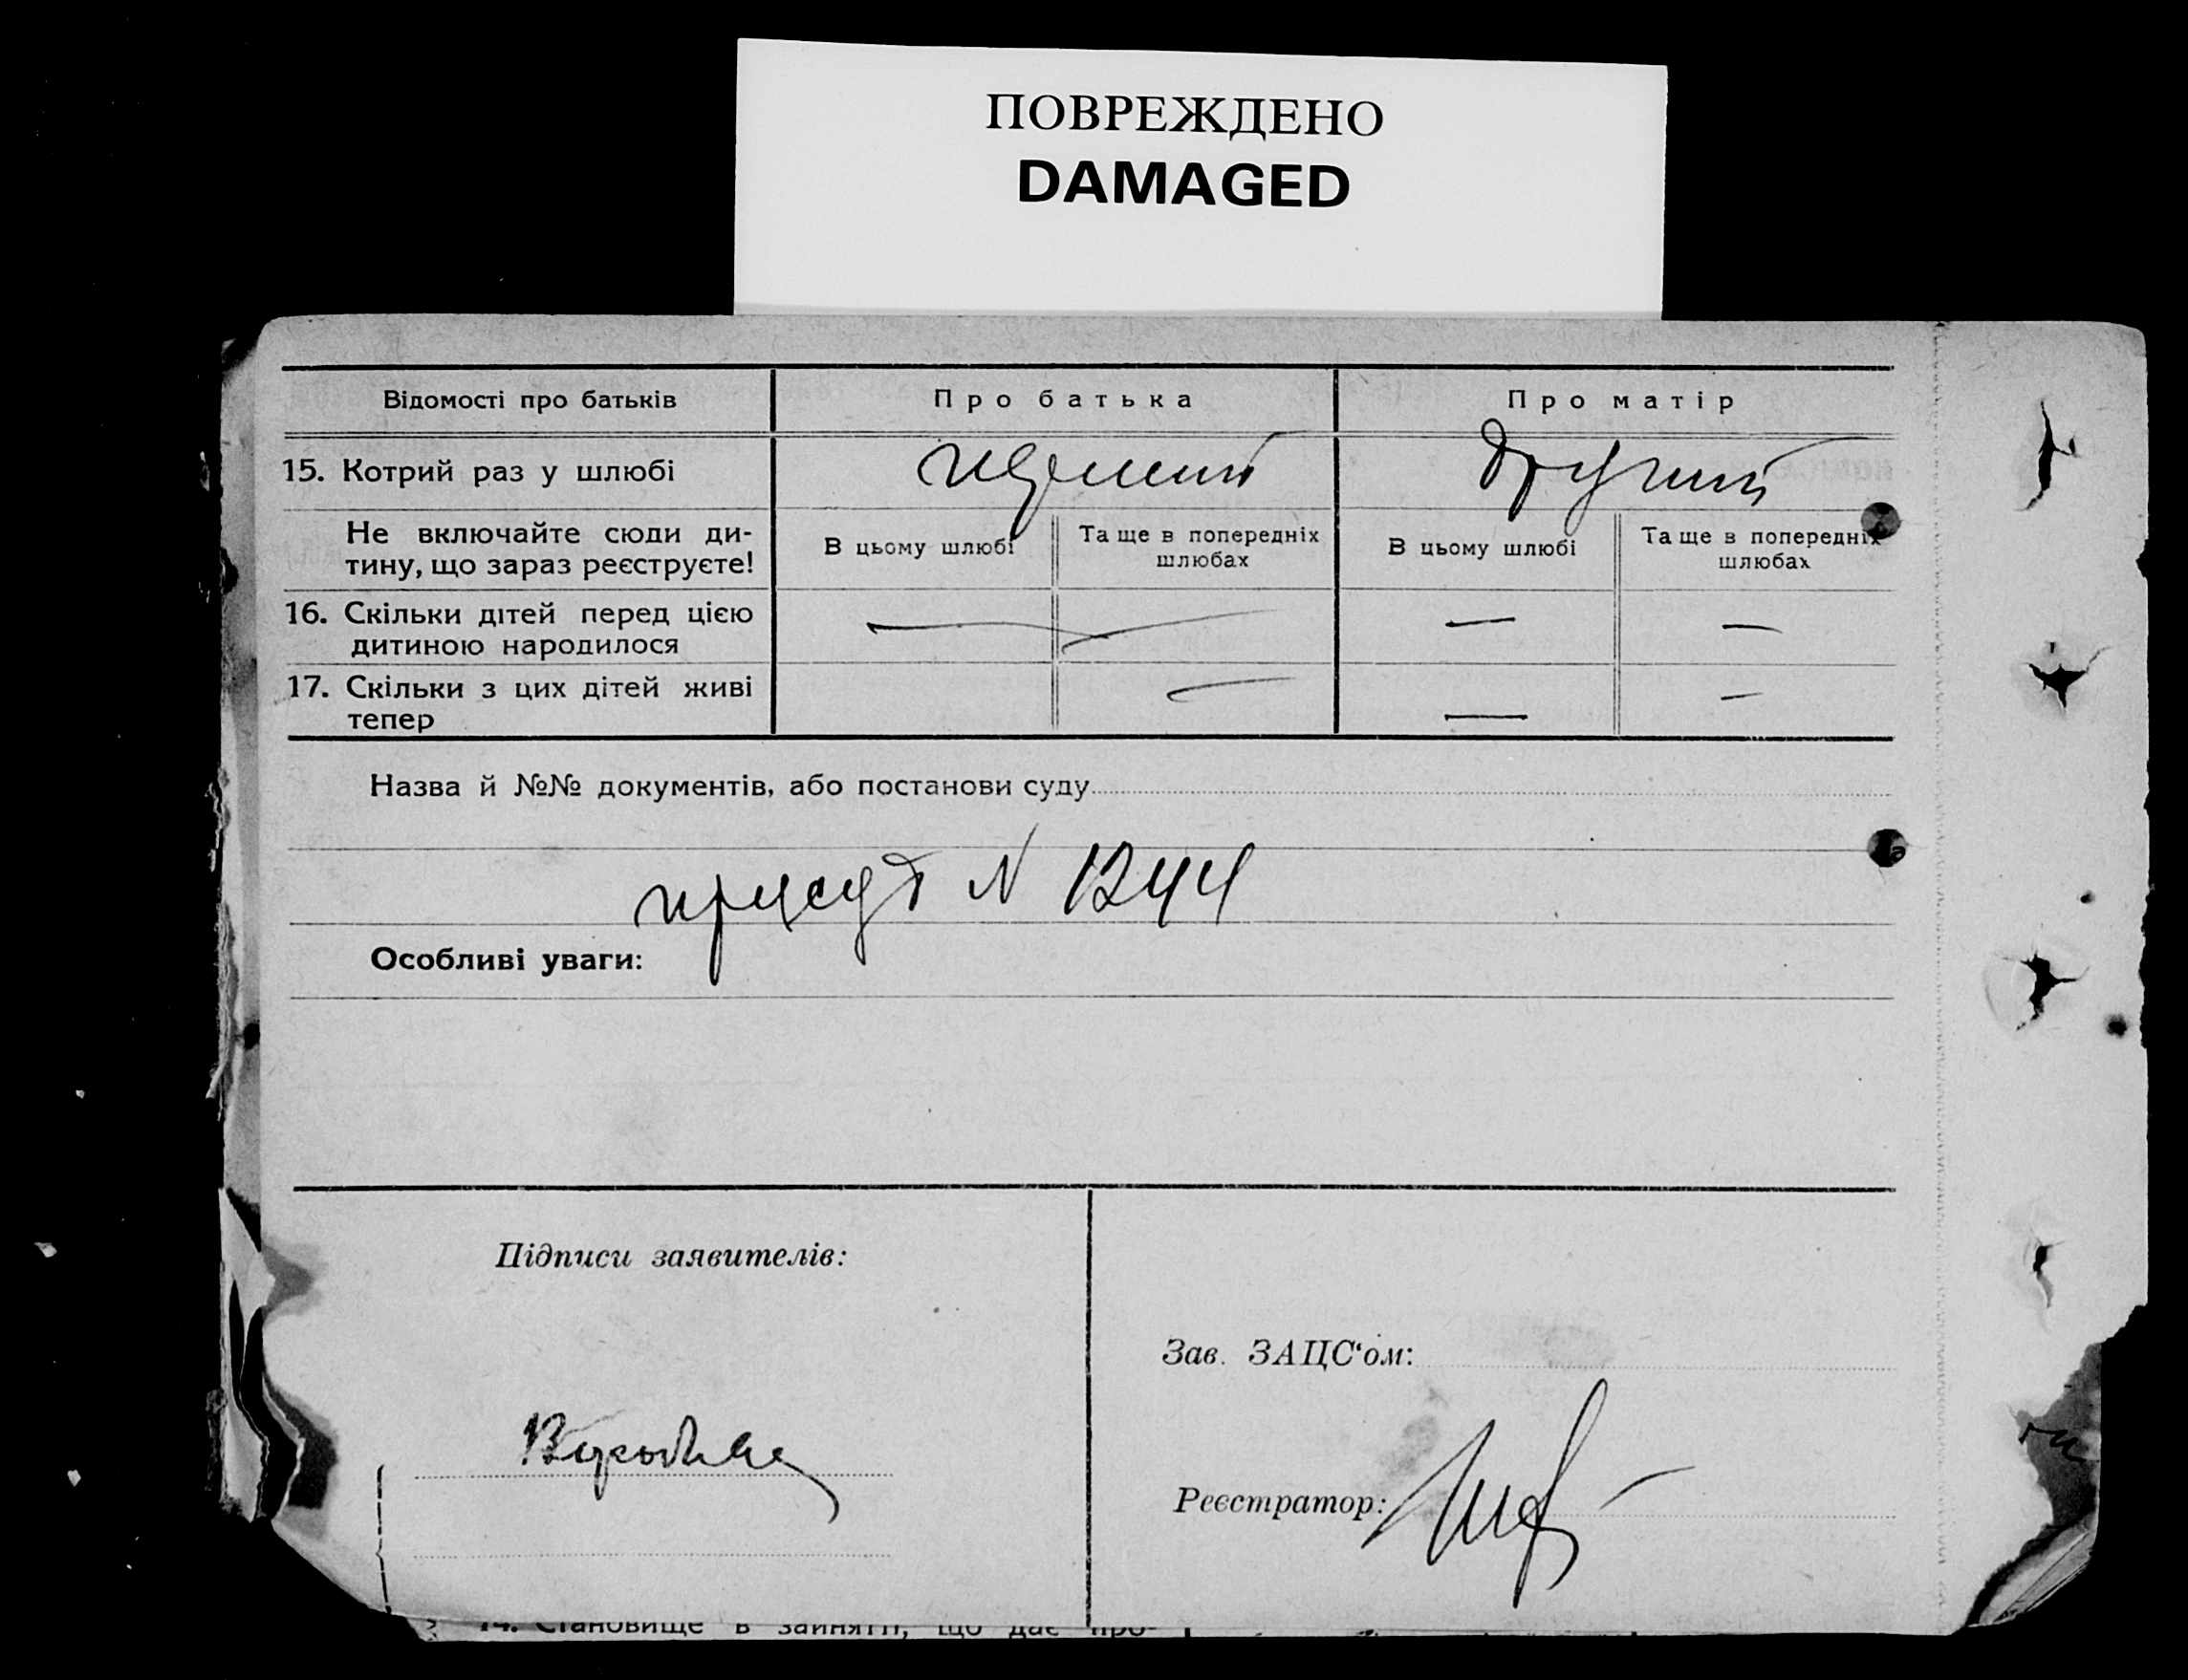 ПОВРЕЖДЕНО
DAMAGED
Відомості про батьків
Про батька
Про матір
15. Котрий раз у шлюбі
перший
другий
Не включайте сюди ди-
тину, що зараз реєструєте!
В цьому шлюбі
Та ще в попередніх
шлюбах
В цьому шлюбі
Та ще в попередніх
шлюбах
16. Скільки дітей перед цією
дитиною народилося
— —
— —
17. Скільки з цих дітей живі
тепер
—
— —
Назва й №№ документів, або постанови суду
N 1244
Особливі уваги:
Підписи заявителів:
Зав. ЗАЦС'ом:
Реєстратор:
14. Становище в занятті, що дає про-